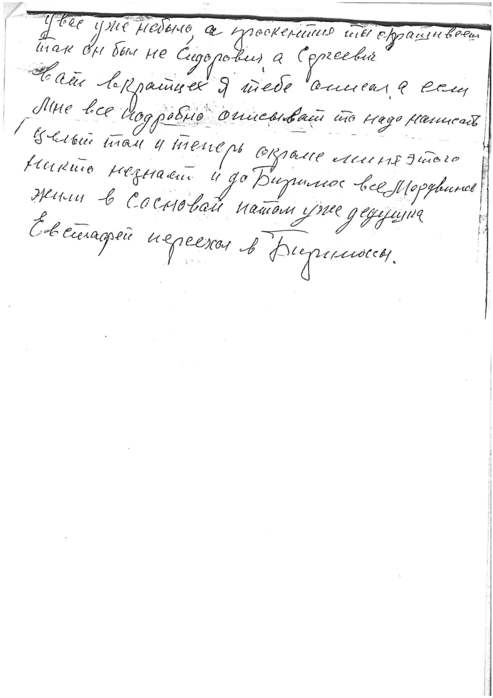 у вас уже небыло а проскентия ты спрашиваеш
так он был не Сидорович а Сергеевич
вать вкратцех я тебе описал а если
мне все подробно описыват то надо написать
целый том и теперь окроме миня этого
никто незнает и до Бирилюс все Мордвинов
жили в Сосновай патом уже дедушка
Евстафей переехал в Бирилюсы.